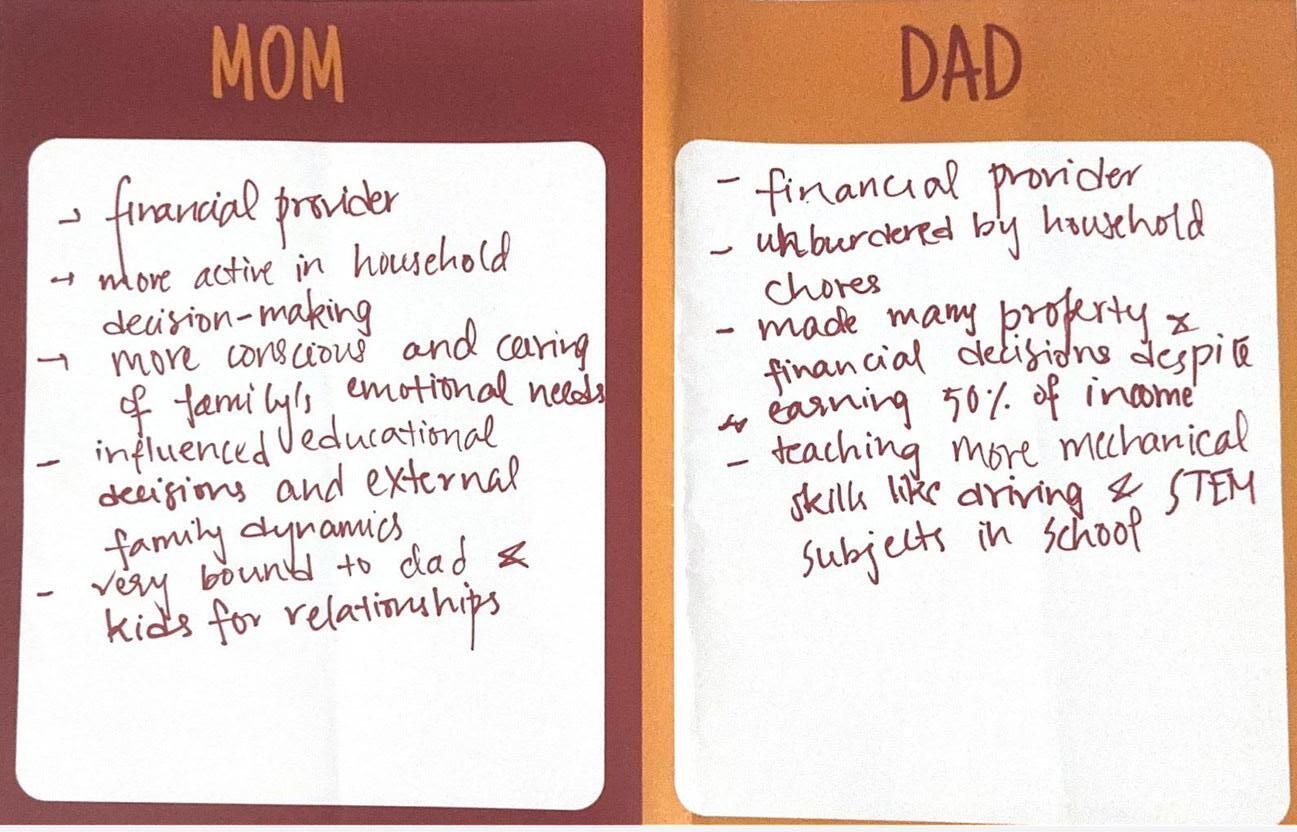 MOM
→ financial provider
→ more active in household
decision-making
→ more conscious and caring
of family's emotional needs
- influenced educational
decisions and external
family dynamics
- very bound to dad &
kids for relationships
DAD
- financial provider
- unburdered by household
chores
- made many property &
financial decisions despite
earning 50% of income
- teaching more mechanical
skills like driving & STEM
subjects in school